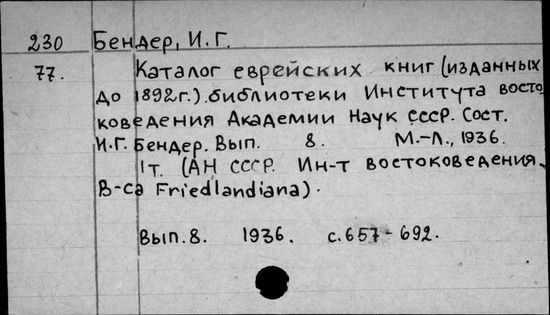 230 Бендер, И.Г.
77. Каталог еврейских книг (изданных
до 1892г.) библиотеки Института восто
коведения Академии Наук СССР. Сост.
И.Г. Бендер. Вып. 8. М.-Л., 1936.
1т. (АН СССР. Ин-т востоковедения.
В-са Friedlandiana).
Вып. 8. 1936. с. 657-692.